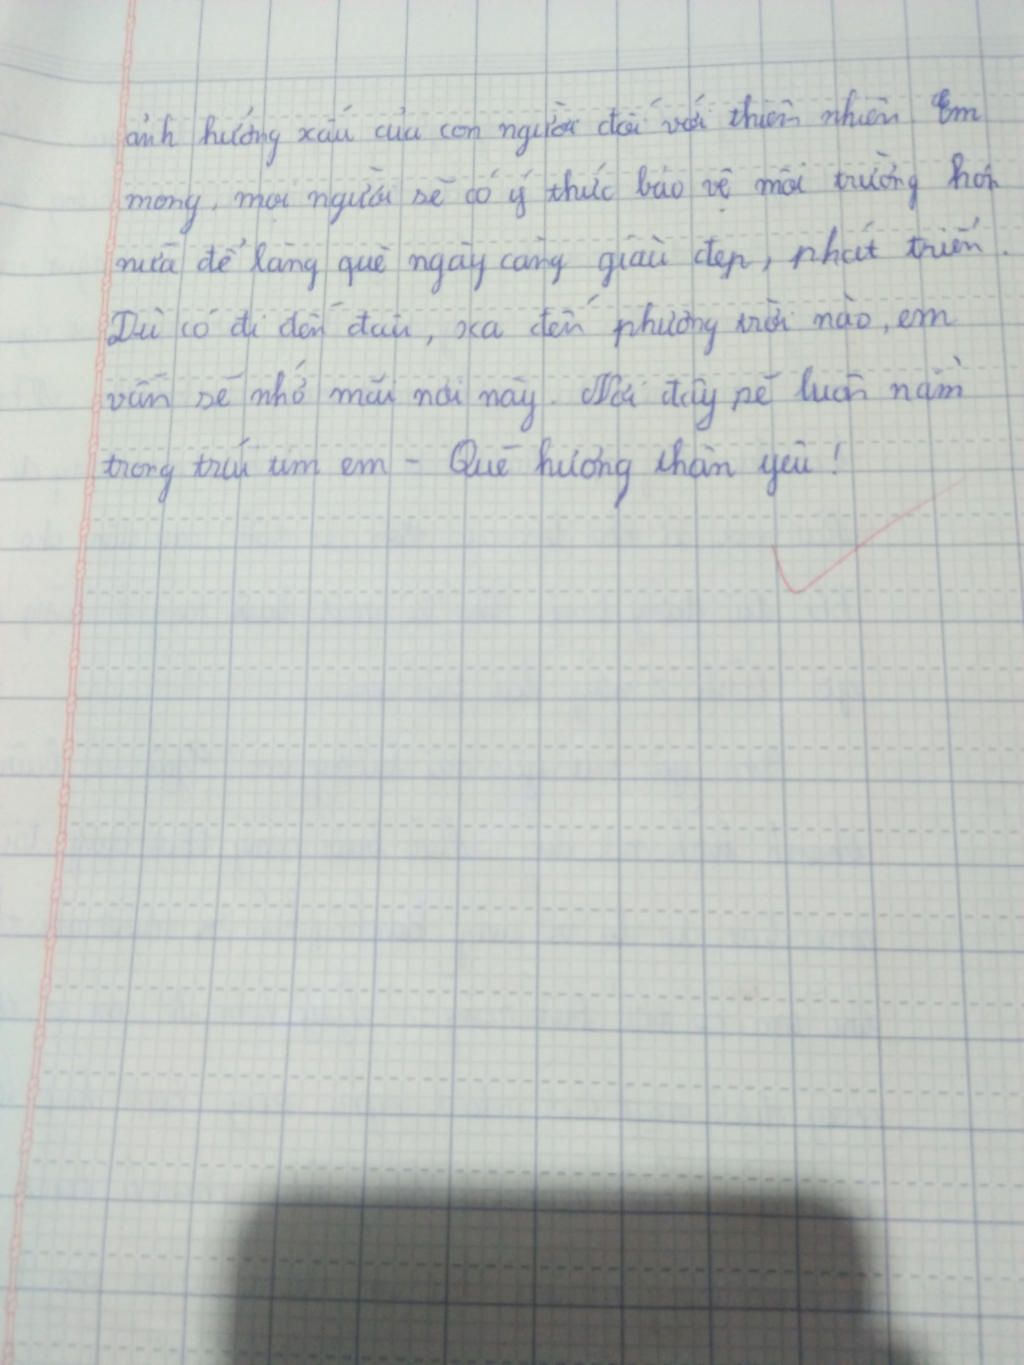 ảnh hưởng xấu của con người đối với thiên nhiên. Em
mong, mọi người sẽ có ý thức bảo vệ môi trường hơn
nữa để làng quê ngày càng giàu đẹp, phát triển.
Dù có đi đến đâu, xa đến phương trời nào, em
vẫn sẽ nhớ mãi nơi này. Nơi đây sẽ luôn nằm
trong trái tim em - Quê hương thân yêu!